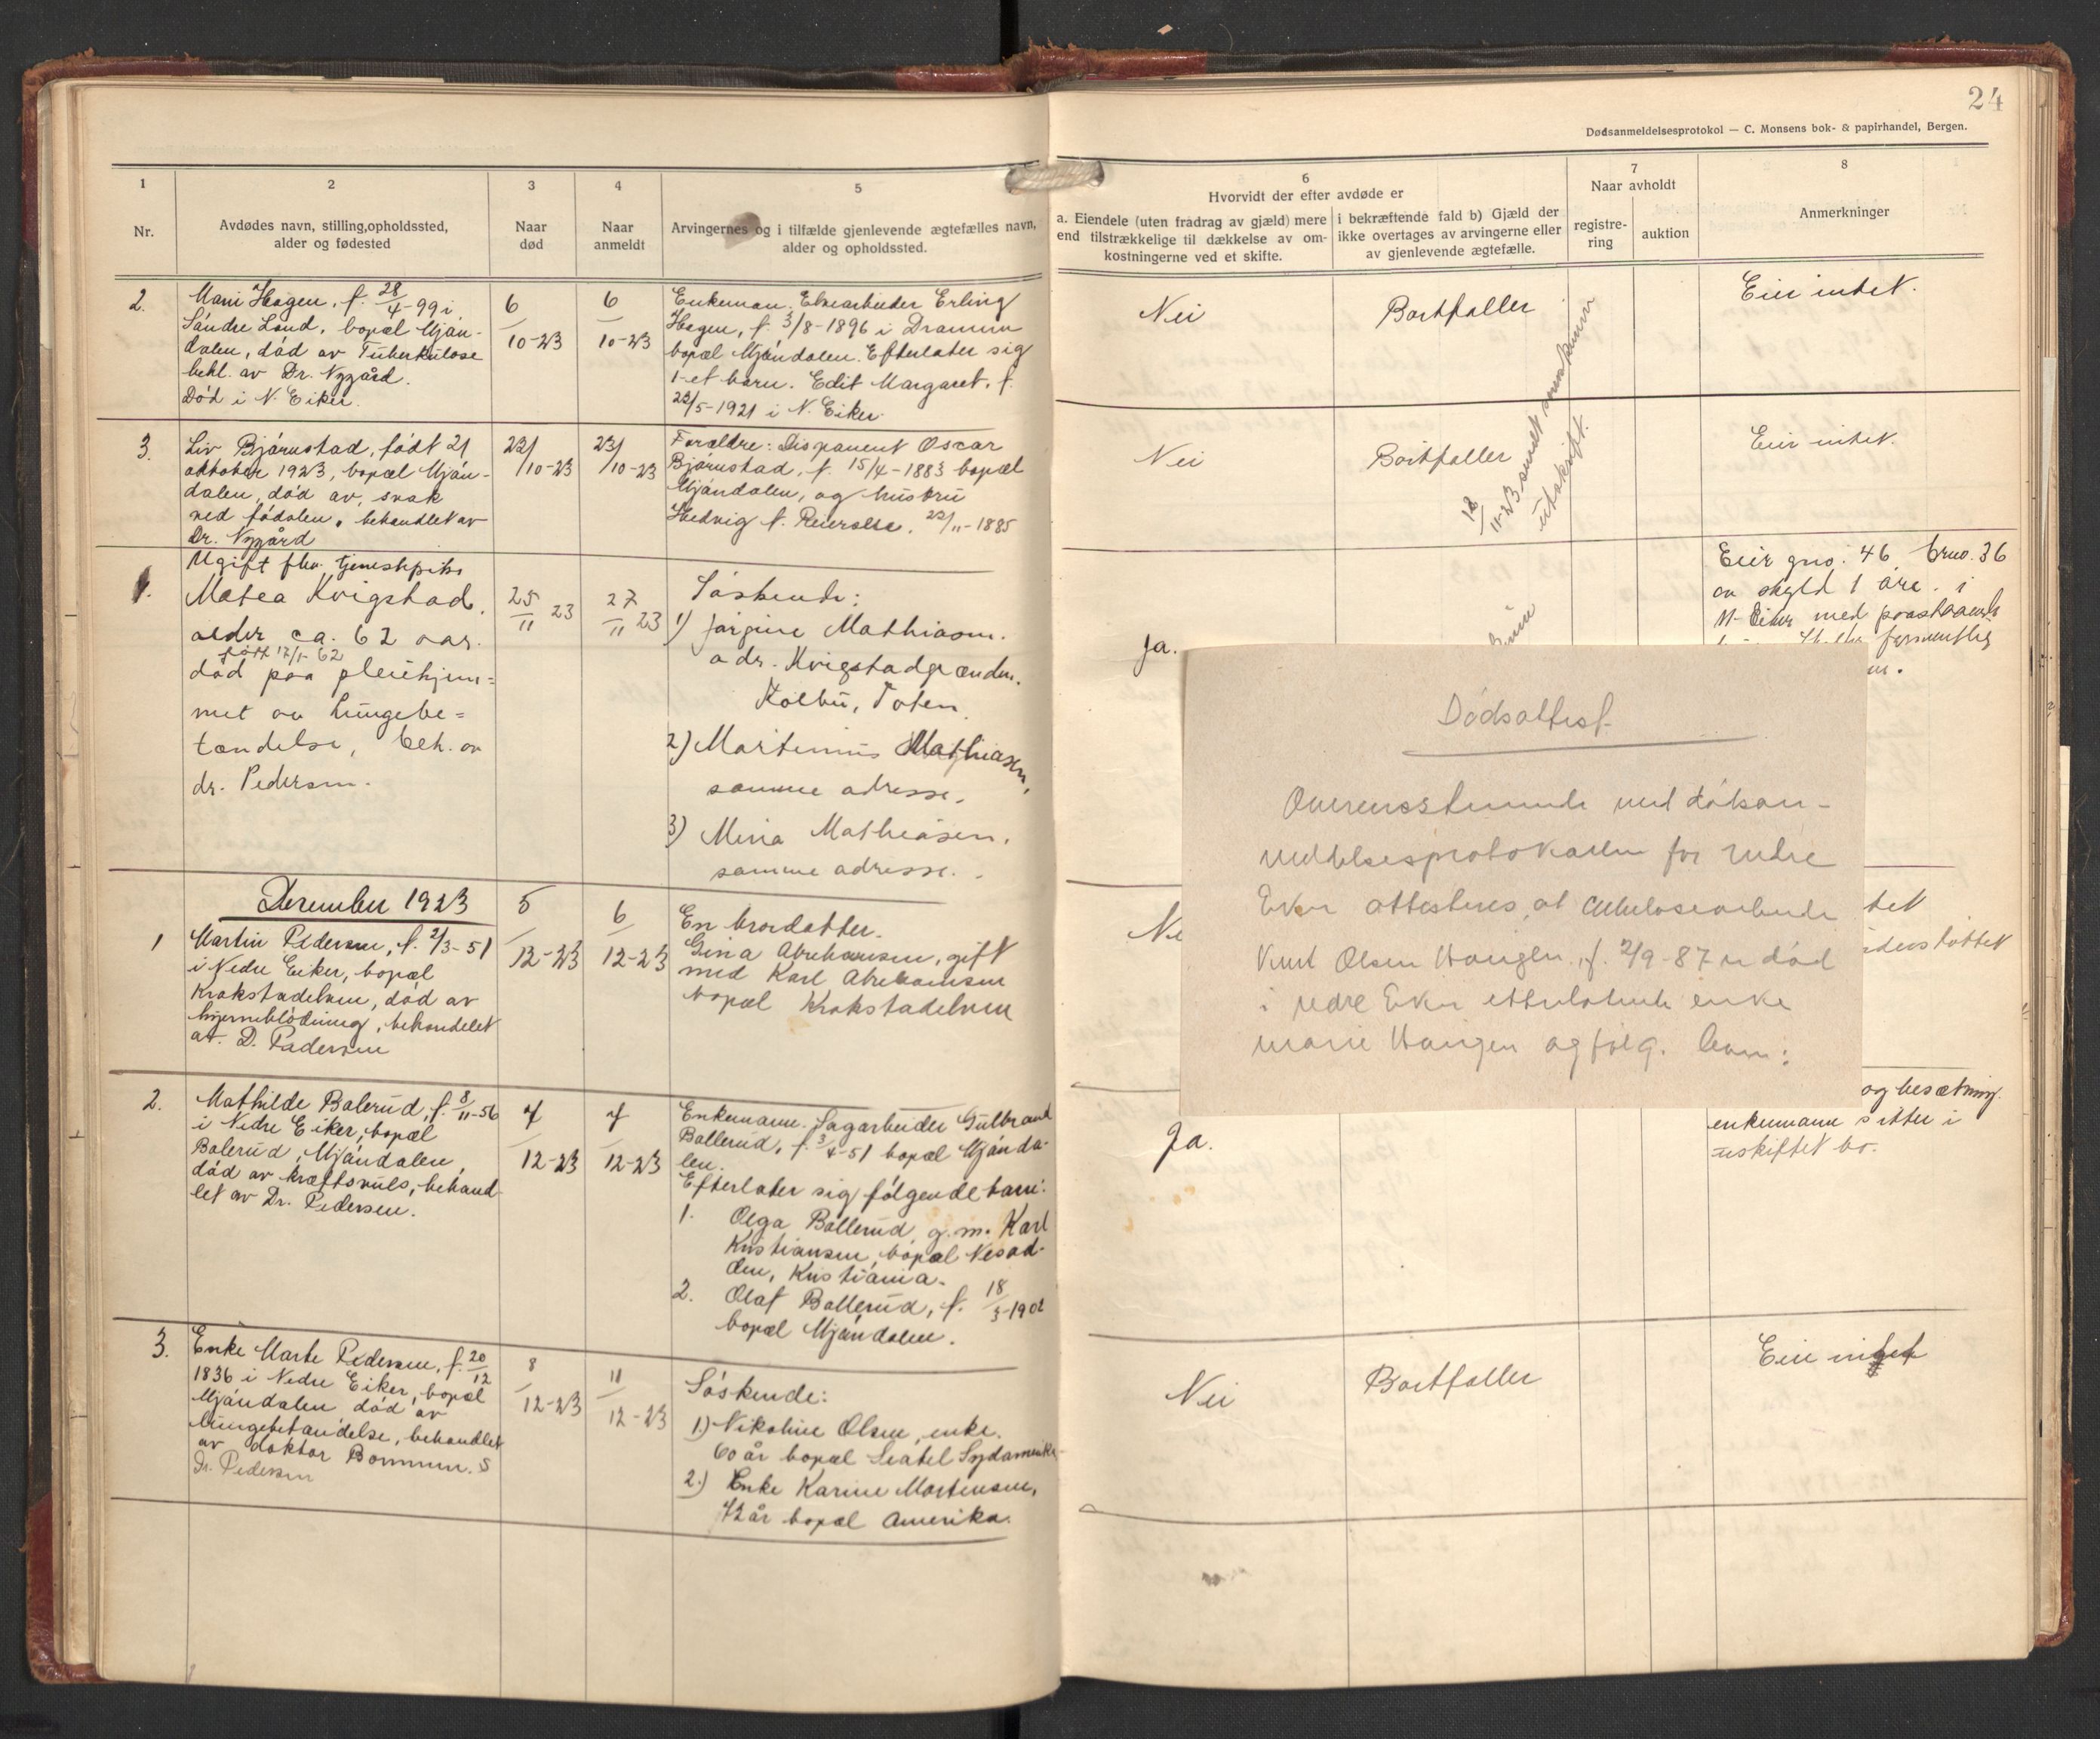 24
Dødsanmeldelsesprotokol — C. Monsens bok- & papirhandel, Bergen.
1
Nr.
2
Avdødes navn, stilling, opholdssted,
alder og fødested
3
Naar
død
4
Naar
anmeldt
5
Arvingernes og i tilfælde gjenlevende ægtefælles navn,
alder og opholdssted.
6
Hvorvidt der efter avdøde er
a. Eiendele (uten fradrag av gjæld) mere
end tilstrækkelige til dækkelse av om-
kostningerne ved et skifte.
i bekræftende fald b) Gjæld der
ikke overtages av arvingerne eller
av gjenlevende ægtefælle.
7
Naar avholdt
registre-
ring
auktion
8
Anmerkninger
2.
Marie Hagen, f. 28/4-99 i
Søndre Land, bopæl Mjøn-
dalen, død av Tuberkulose
behl. av Dr. Nygård.
Død i N. Eiker.
6/10-23
6/10-23
Enkeman. Elvearbeider Erling
Hagen, f. 3/8-1896 i Drammen
bopæl Mjøndalen. Efterlater sig
1-et barn. Edit Margaret. f.
23/5-1921 i N. Eiker.
Nei
Bortfaller
Eier intet.
3.
Liv Bjørnstad, født 21
oktober 1923, bopæl Mjøn-
dalen, død av, svak
ved fødslen, behandlet av
Dr. Nygård
23/10-23
23/10-23
Forældre: Disponent Oscar
Bjørnstad, f. 15/4-1883 bopæl
Mjøndalen, og hustru
Hedvig f. Reierselse. 22/11-1885
Nei
Bortfaller
Eier intet.
18/11-23 sendt
utskrift.
1.
Ugift fhv. tjenestepike
Matea Kvigstad,
alder ca. 62 aar.
født 17/1-62
død paa pleiehjem=
met av lungebe=
tændelse, beh. av
dr. Pedersen.
25/11 23
27/11 23
Søskende:
1) Jørgine Mathiasen.
adr. Kvigstadgrænden.
Kolbu, Toten.
2) Martinius Mathiasen,
samme adresse.
3) Mina Mathiasen.
samme adresse.
Ja.
Eier gno. 46 brno. 36
av skyld 1 øre. i
N-Eiker med paastaaende
December 1923
1
Martin Pedersen, f. 2/3-51
i Nedre Eiker, bopæl
Krokstadelven, død av
hjerneblødning, behandlet
av. D. Pedersen
5/12-23
6/12-23
En brordatter.
Gina Abrahamsen, gift
med Karl Abrahamsen
bopæl Krokstadelven
Ne
tet
2.
Mathilde Balerud, f. 8/11-56
i Nedre Eiker, bopæl
Balerud, Mjøndalen,
død av kræftsvuls, behand-
let av Dr. Pedersen.
7/12-23
7/12-23
Enkemann. Sagarbeider Gulbrand
Ballerud, f. 3/4-51 bopæl Mjønda-
len.
Efterlater sig følgende barn:
1. Olga Ballerud, g.m. Karl
Kristiansen, bopæl Nesod-
den, Kristiania.
2. Olaf Ballerud, f. 18/3-1902
bopæl Mjøndalen.
Ja.
og besætning.
enkemann sitter i
uskiftet bo.
3.
Enke Marte Pedersen, f. 20/12
1836 i Nedre Eiker, bopæl
Mjøndalen død av
lungebetændelse, behandlet
av doktor
Dr. Pedersen
8/12-23
11/12-23
Søskende:
1.) Nikoline Olsen, enke.
60 år bopæl Seatel Sydamerika
2.) Enke Karine Mortensen,
72 år bopæl Amerika.
Nei
Bortfaller
Eier intet
Dødsattest.
Overensstemmende med dødsan-
meldelsesprotokollen for nedre
Eker attesteres, at cellulosearbeide
Knut Olsen Haugen, f. 2/9-87 er død
i nedre Eker etterlatende enke
Marie Haugen og følg. barn: